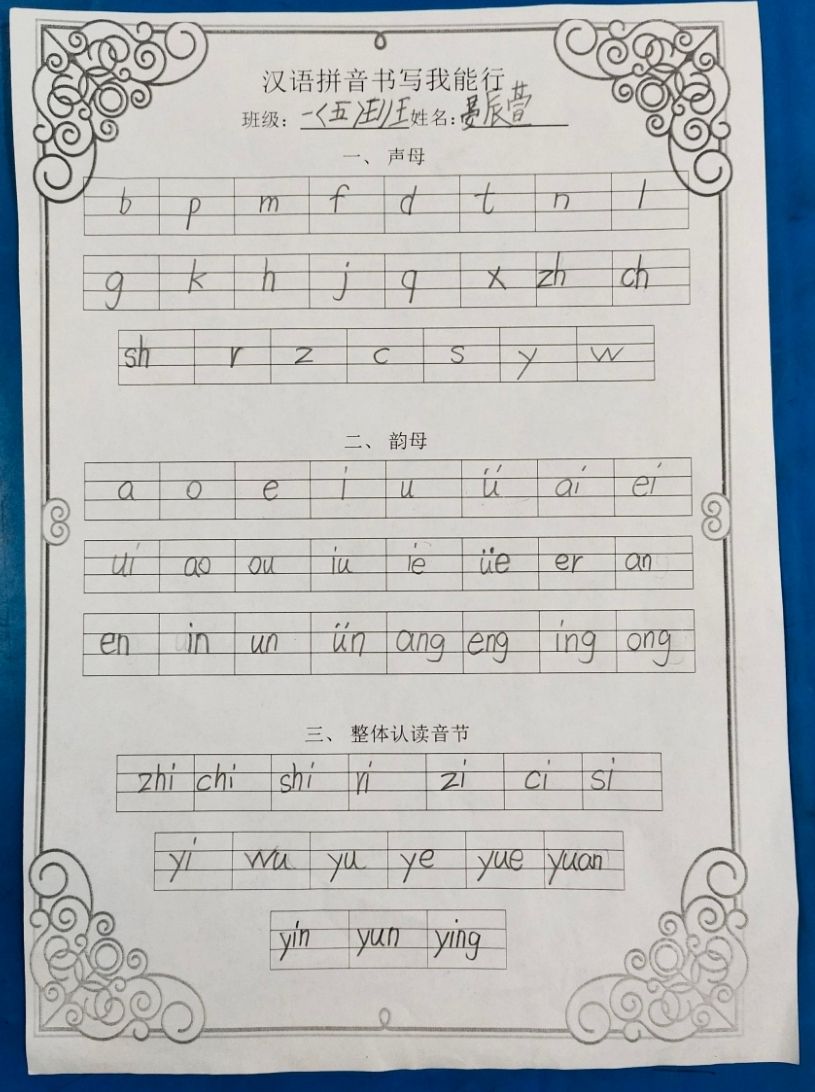 汉语拼音书写我能行
班级：一（五）班 姓名：晏辰萱
一、声母
b p m f d t n l
g k h j q x zh ch
sh r z c s y w
二、韵母
a o e i u ü ai ei
ui ao ou iu ie üe er an
en in un ün ang eng ing ong
三、整体认读音节
zhi chi shi ri zi ci si
yi wu yu ye yue yuan
yin yun ying